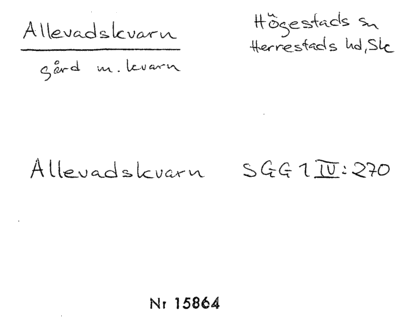 Allevadskvarn
gård m. kvarn
Högestads sn
Herrestads hd, Sk
Allevadskvarn SGG 1 IV: 270
Nr 15864